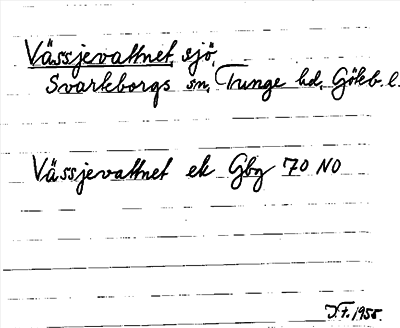 Vässjevattnet, sjö,
Svarteborgs sn, Tunge hd, Göteb. l.
Vässjevattnet ek Gbg 70 NO
1955.